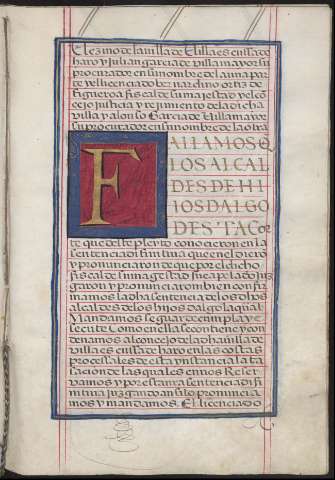 Vezino de la villa de Villaes cussa de
haro y Julian garcia de villamayor su
procurador en su nombre de la una par
te y el licenciado bernardino ortiz de
figueroa fiscal de su majestad y el co
cejo justicia y rejimiento de la dicha
villa y alonso Garcia de Villamayor
su procurador en su nombre de la otra
FALLAMOS Q
LOS ALCAL
DES DE HI
IOS DALGO
DESTA COr
te que deste pleyto conoçieron en la
sentencia difinitiua que en el dieron
y pronunciaron de que por el dicho
fiscal de su magestad fue apelado juz
garon y pronunciaron bien confir
mamos la dha sentencia de los dhos
alcaldes de los hijos dalgo la qual
Mandamos se guarde cumpla y e
secute Como en ella se contiene y con
denamos al concejo de la dha villa de
villaes cussa de haro en las costas
processales desta ynstancia la ta
sacion de las quales en nos Reser
vamos y por esta nra sentencia difi
nitiua juzgando ansi lo pronuncia
mos y mandamos. El licenciado